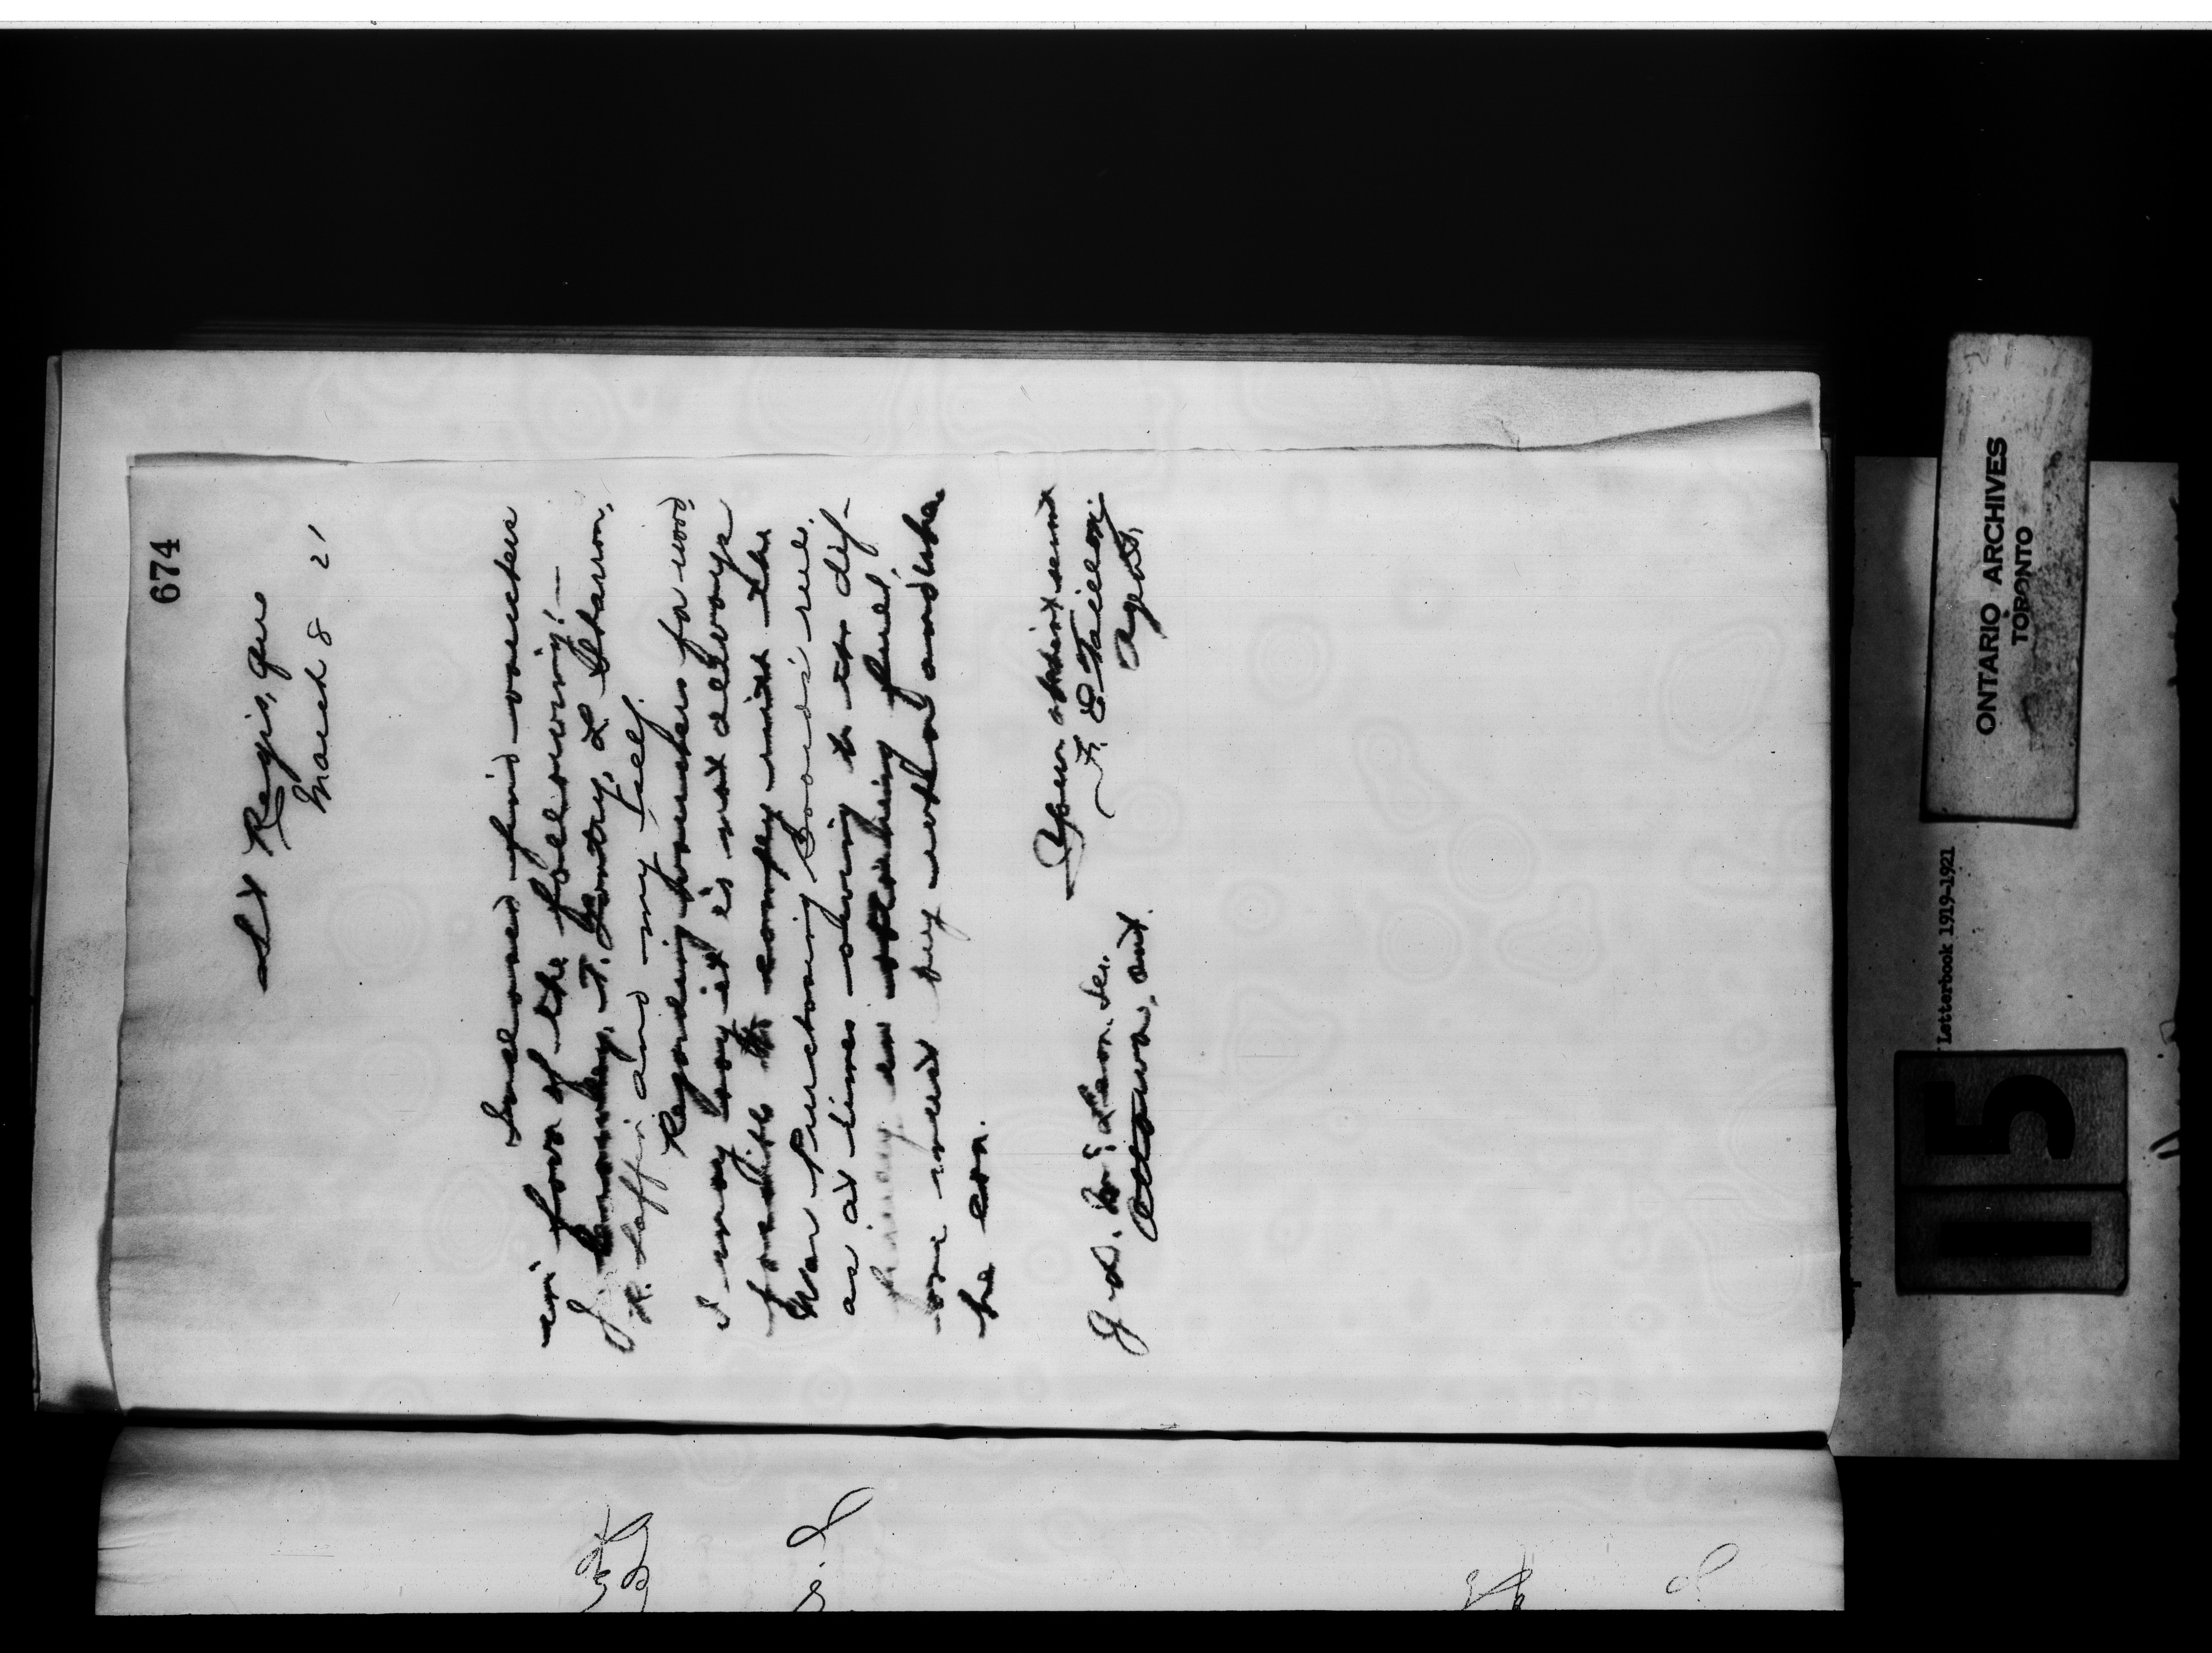 674
St Regis, Que
March 8 21
Inclosed find vouches
in favor of the following:—
J. T. Lantry, L
R. Laffin and my self.
Regarding vouchers for wood
I may say it is not allways
possible to comply with the
War Purchasing Board's rule.
as at times owing to the dif-
ficulty in obtaining fuel,
one must buy what and when
he can.
Your obedient servant
F. E. Taillon
Agent,
J. D. McLean. Sec.
Ottawa, Ont.
ONTARIO ARCHIVES
TORONTO
Letterbook 1919-1921
115